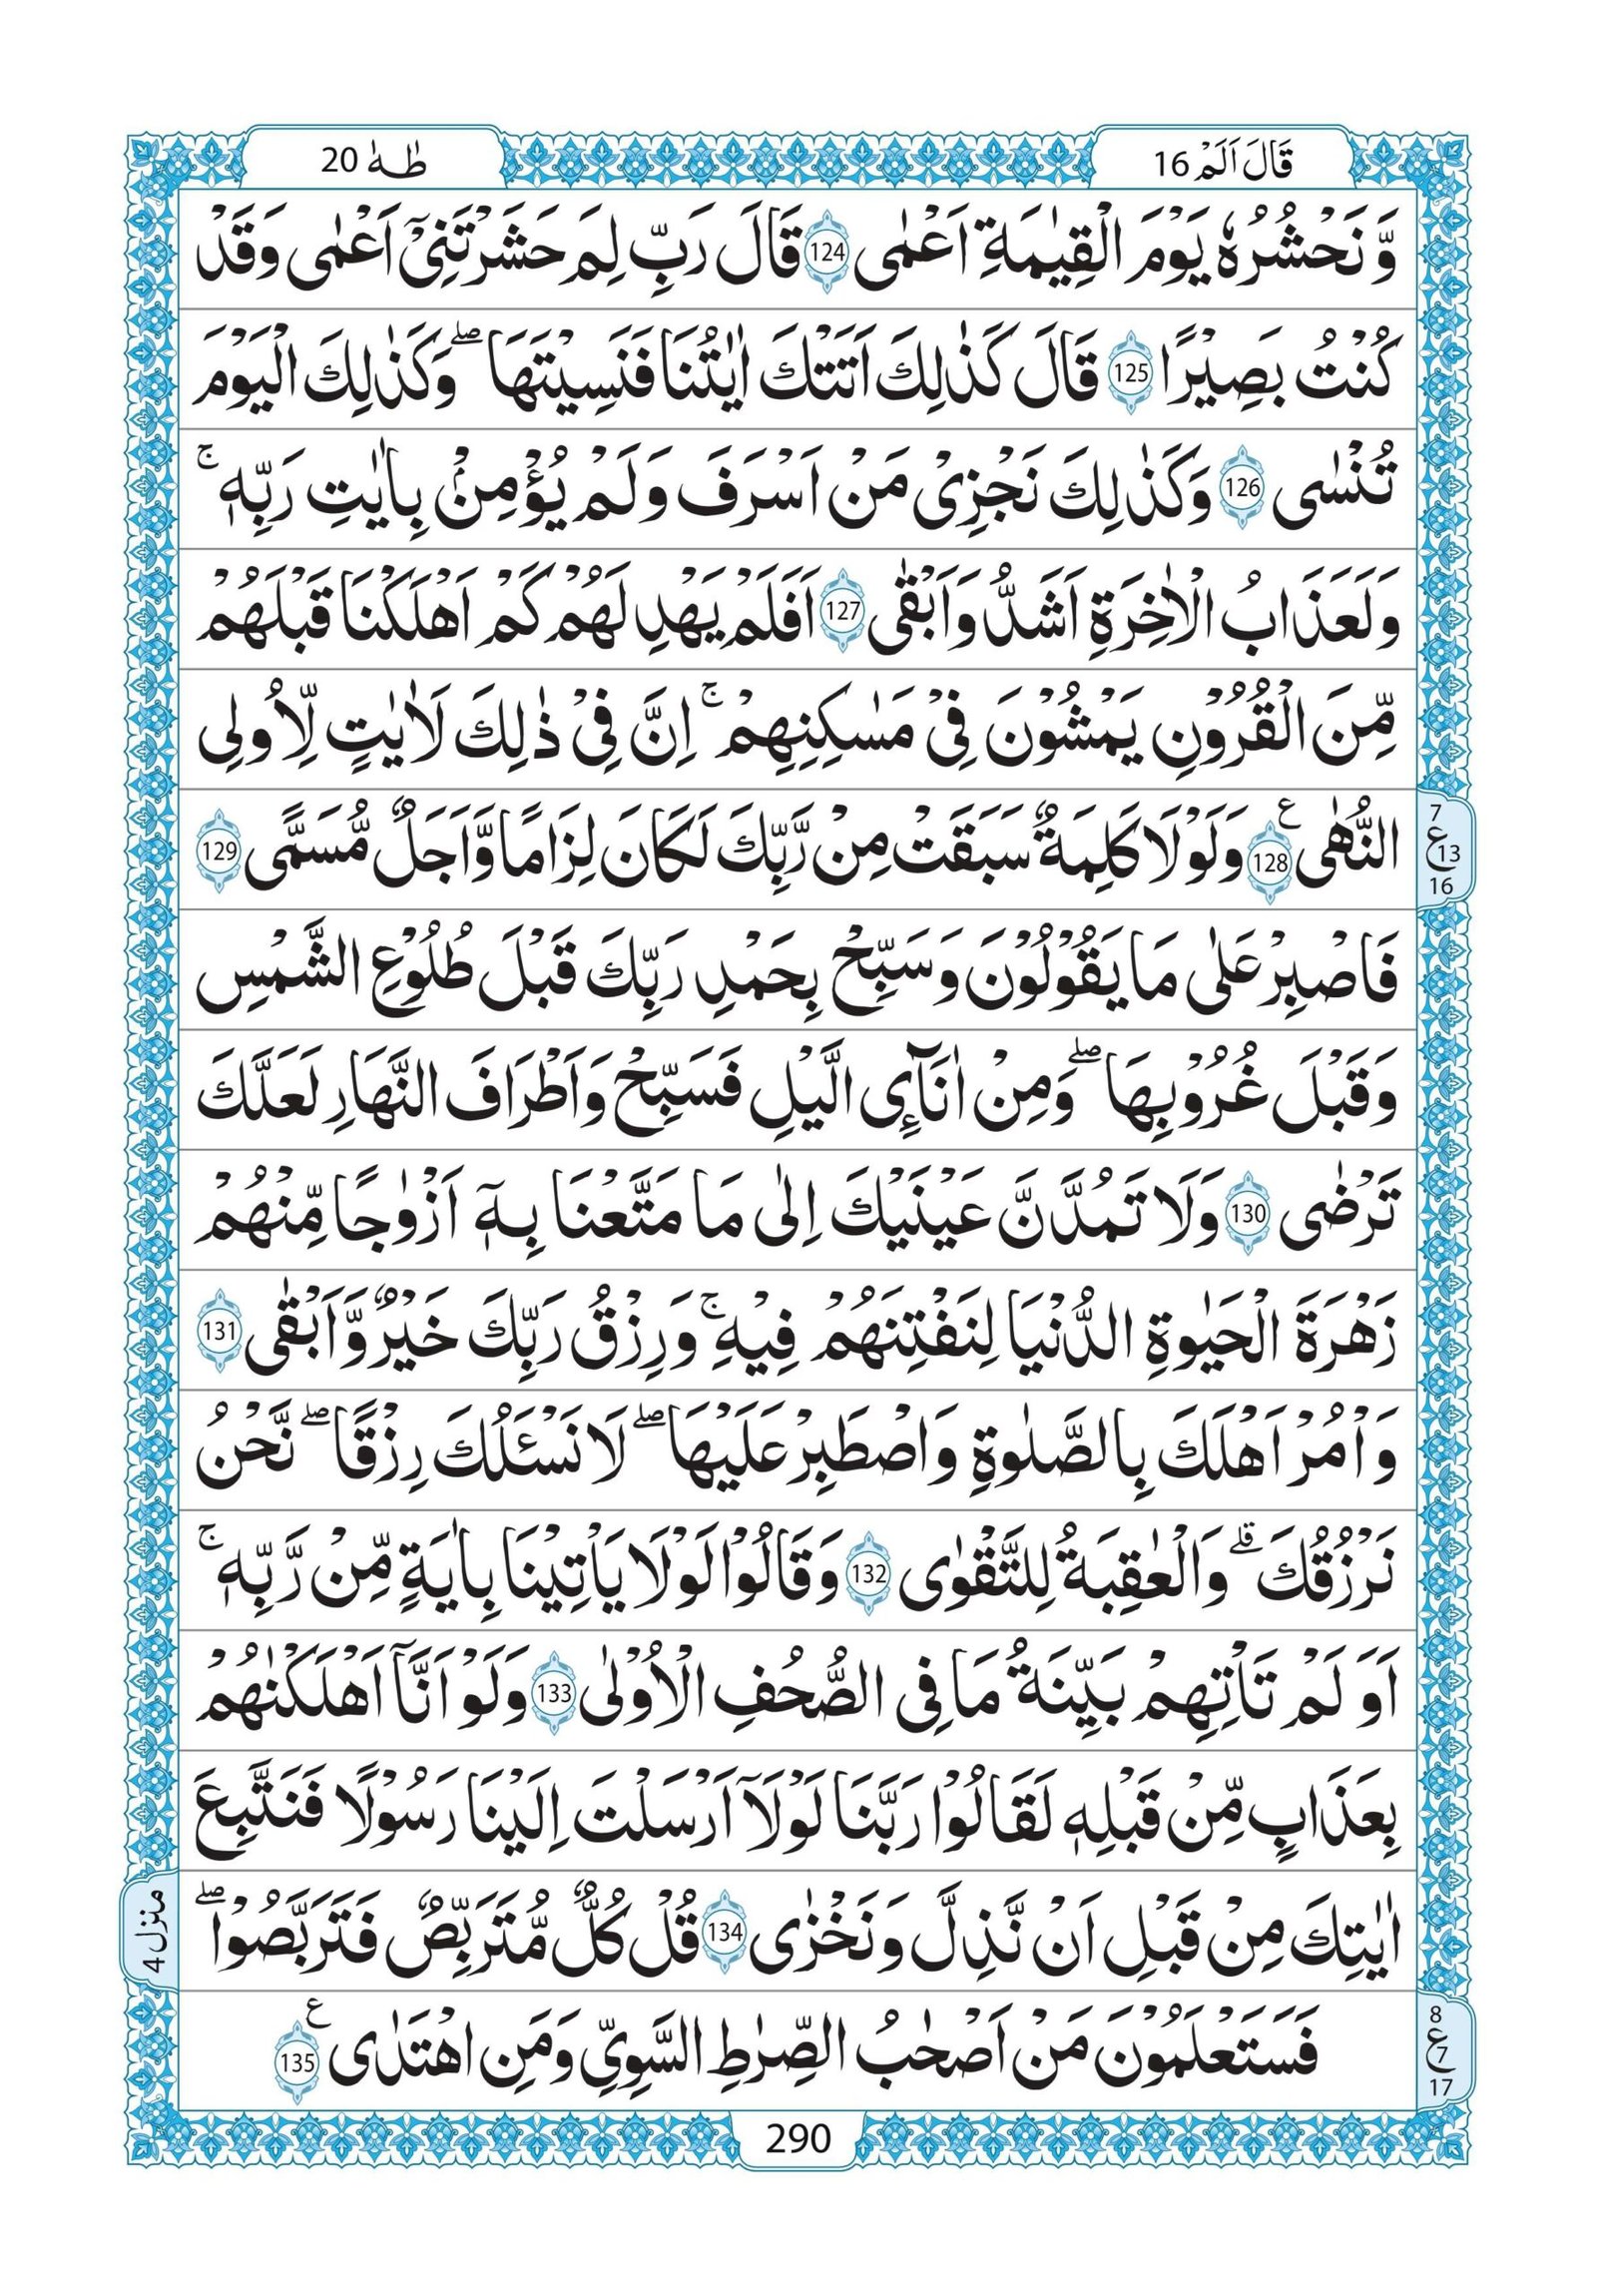 قَالَ اَلَمْ 16
طٰهٰ 20
وَّ نَحْشُرُهٗ يَوْمَ الْقِيٰمَةِ اَعْمٰى 124 قَالَ رَبِّ لِمَ حَشَرْتَنِيْۤ اَعْمٰى وَقَدْ
كُنْتُ بَصِيْرًا 125 قَالَ كَذٰلِكَ اَتَتْكَ اٰيٰتُنَا فَنَسِيْتَهَا ۖ وَكَذٰلِكَ الْيَوْمَ
تُنْسٰى 126 وَكَذٰلِكَ نَجْزِيْ مَنْ اَسْرَفَ وَلَمْ يُؤْمِنْۢ بِاٰيٰتِ رَبِّهٖ ۚ
وَلَعَذَابُ الْاٰخِرَةِ اَشَدُّ وَاَبْقٰى 127 اَفَلَمْ يَهْدِ لَهُمْ كَمْ اَهْلَكْنَا قَبْلَهُمْ
مِّنَ الْقُرُوْنِ يَمْشُوْنَ فِيْ مَسٰكِنِهِمْ ۚ اِنَّ فِيْ ذٰلِكَ لَاٰيٰتٍ لِّاُولِي
النُّهٰى 128 ع وَلَوْلَا كَلِمَةٌ سَبَقَتْ مِنْ رَّبِّكَ لَكَانَ لِزَامًا وَّاَجَلٌ مُّسَمًّى 129
7
ع 13
16
فَاصْبِرْ عَلٰى مَا يَقُوْلُوْنَ وَسَبِّحْ بِحَمْدِ رَبِّكَ قَبْلَ طُلُوْعِ الشَّمْسِ
وَقَبْلَ غُرُوْبِهَا ۖ وَمِنْ اٰنَآئِ الَّيْلِ فَسَبِّحْ وَاَطْرَافَ النَّهَارِ لَعَلَّكَ
تَرْضٰى 130 وَلَا تَمُدَّنَّ عَيْنَيْكَ اِلٰى مَا مَتَّعْنَا بِهٖۤ اَزْوٰجًا مِّنْهُمْ
زَهْرَةَ الْحَيٰوةِ الدُّنْيَا لِنَفْتِنَهُمْ فِيْهِ ۚ وَرِزْقُ رَبِّكَ خَيْرٌ وَّاَبْقٰى 131
وَاْمُرْ اَهْلَكَ بِالصَّلٰوةِ وَاصْطَبِرْ عَلَيْهَا ۖ لَا نَسْـَٔلُكَ رِزْقًا ۖ نَّحْنُ
نَرْزُقُكَ ۗ وَالْعٰقِبَةُ لِلتَّقْوٰى 132 وَقَالُوْا لَوْلَا يَاْتِيْنَا بِاٰيَةٍ مِّنْ رَّبِّهٖ ۚ
اَوَ لَمْ تَاْتِهِمْ بَيِّنَةُ مَا فِي الصُّحُفِ الْاُوْلٰى 133 وَلَوْ اَنَّاۤ اَهْلَكْنٰهُمْ
بِعَذَابٍ مِّنْ قَبْلِهٖ لَقَالُوْا رَبَّنَا لَوْلَاۤ اَرْسَلْتَ اِلَيْنَا رَسُوْلًا فَنَتَّبِعَ
اٰيٰتِكَ مِنْ قَبْلِ اَنْ نَّذِلَّ وَنَخْزٰى 134 قُلْ كُلٌّ مُّتَرَبِّصٌ فَتَرَبَّصُوْا ۖ
منزل 4
فَسَتَعْلَمُوْنَ مَنْ اَصْحٰبُ الصِّرٰطِ السَّوِيِّ وَمَنِ اهْتَدٰى 135 ع
8
ع 7
17
290